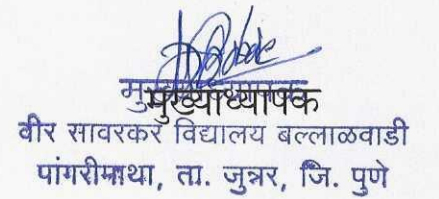 मुख्याध्यापक
वीर सावरकर विद्यालय बल्लाळवाडी
पांगरीमाथा, ता. जुन्नर, जि. पुणे